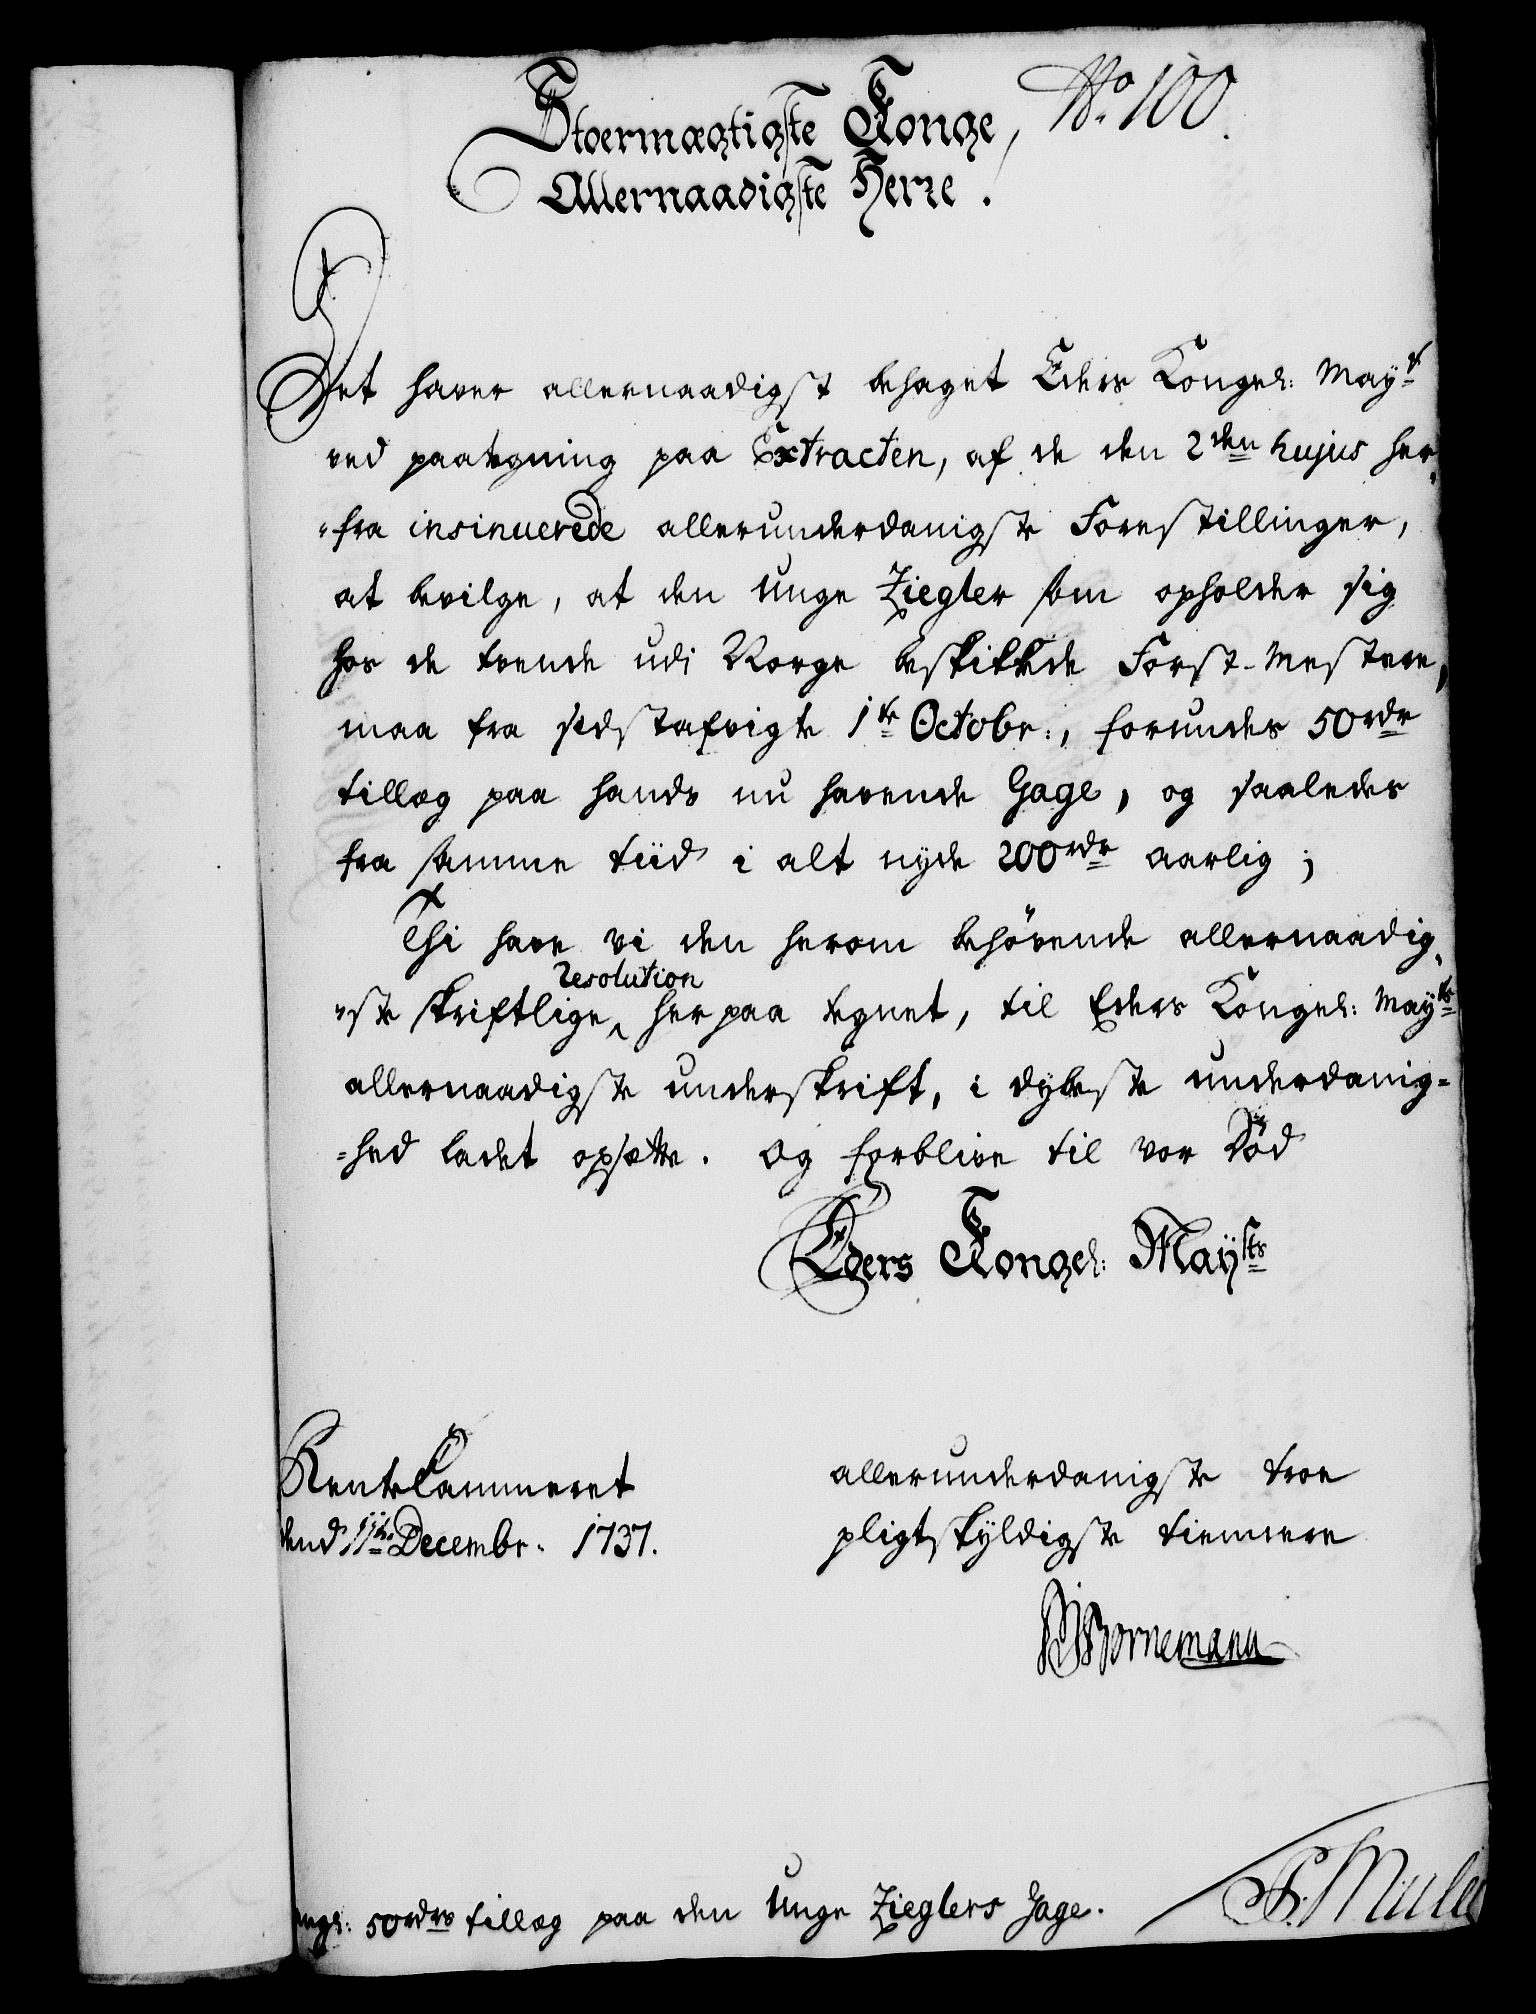 Stoermægtigste Konge, No. 100.
Allernaadigste Herre.
Det haver allernaadigst behaget Eders Kongel: Mayt
ved paategning paa Extracten, af de den 2den hujus her-
-fra insinuerede allerunderdanigste Forestillinger,
at bevilge, at den unge Ziegler som opholder sig
hos de trende udi Norge beskikkede Forst-Mestere,
maa fra sidstafvigte 1te Octobr:, forundes 50rdr
tillæg paa hands nu havende Gage, og saaledes
fra samme tiid i alt nyde 200rdr aarlig;
Thi have vi den herom behövende allernaadig-
resolution
-ste skriftlige, her paa tegnet, til Eders Kongel: Mayts
allernaadigste underskrift, i dybeste underdanig-
-hed ladet opsætte. Og forblive til vor Död
Eders Kongel: Maysts
RenteCammeret
dend 11te Decembr. 1737.
allerunderdanigste troe
pligtskyldigste tiennere
Bornemann
F. Müller
angl: 50rdrs tillæg paa den unge Zieglers Gage.